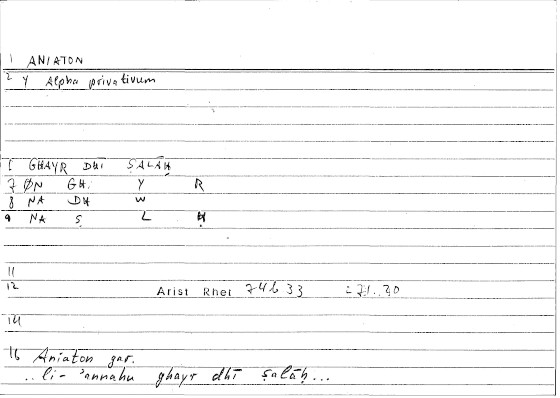 1 ANIATON
2 Y Alpha privativum
6 GHAYR DHI ṢALĀḤ
7 ØN GH. Y R
8 NA DH W
9 NA Ṣ L Ḥ
11
12 Arist Rhet 74b33 = 71.20
14
16 Aniaton gar.
..li-'annahu ghayr dhī ṣalāḥ...